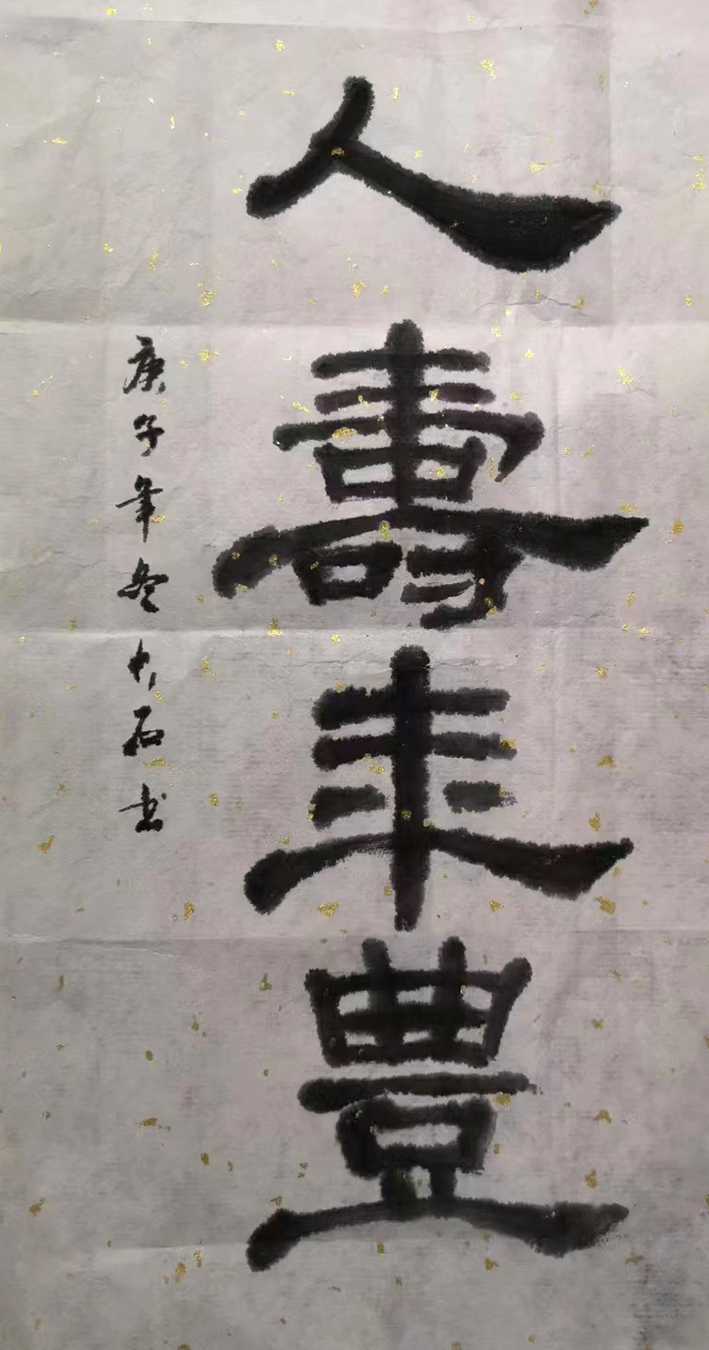 人壽年豊
庚子年冬大石書